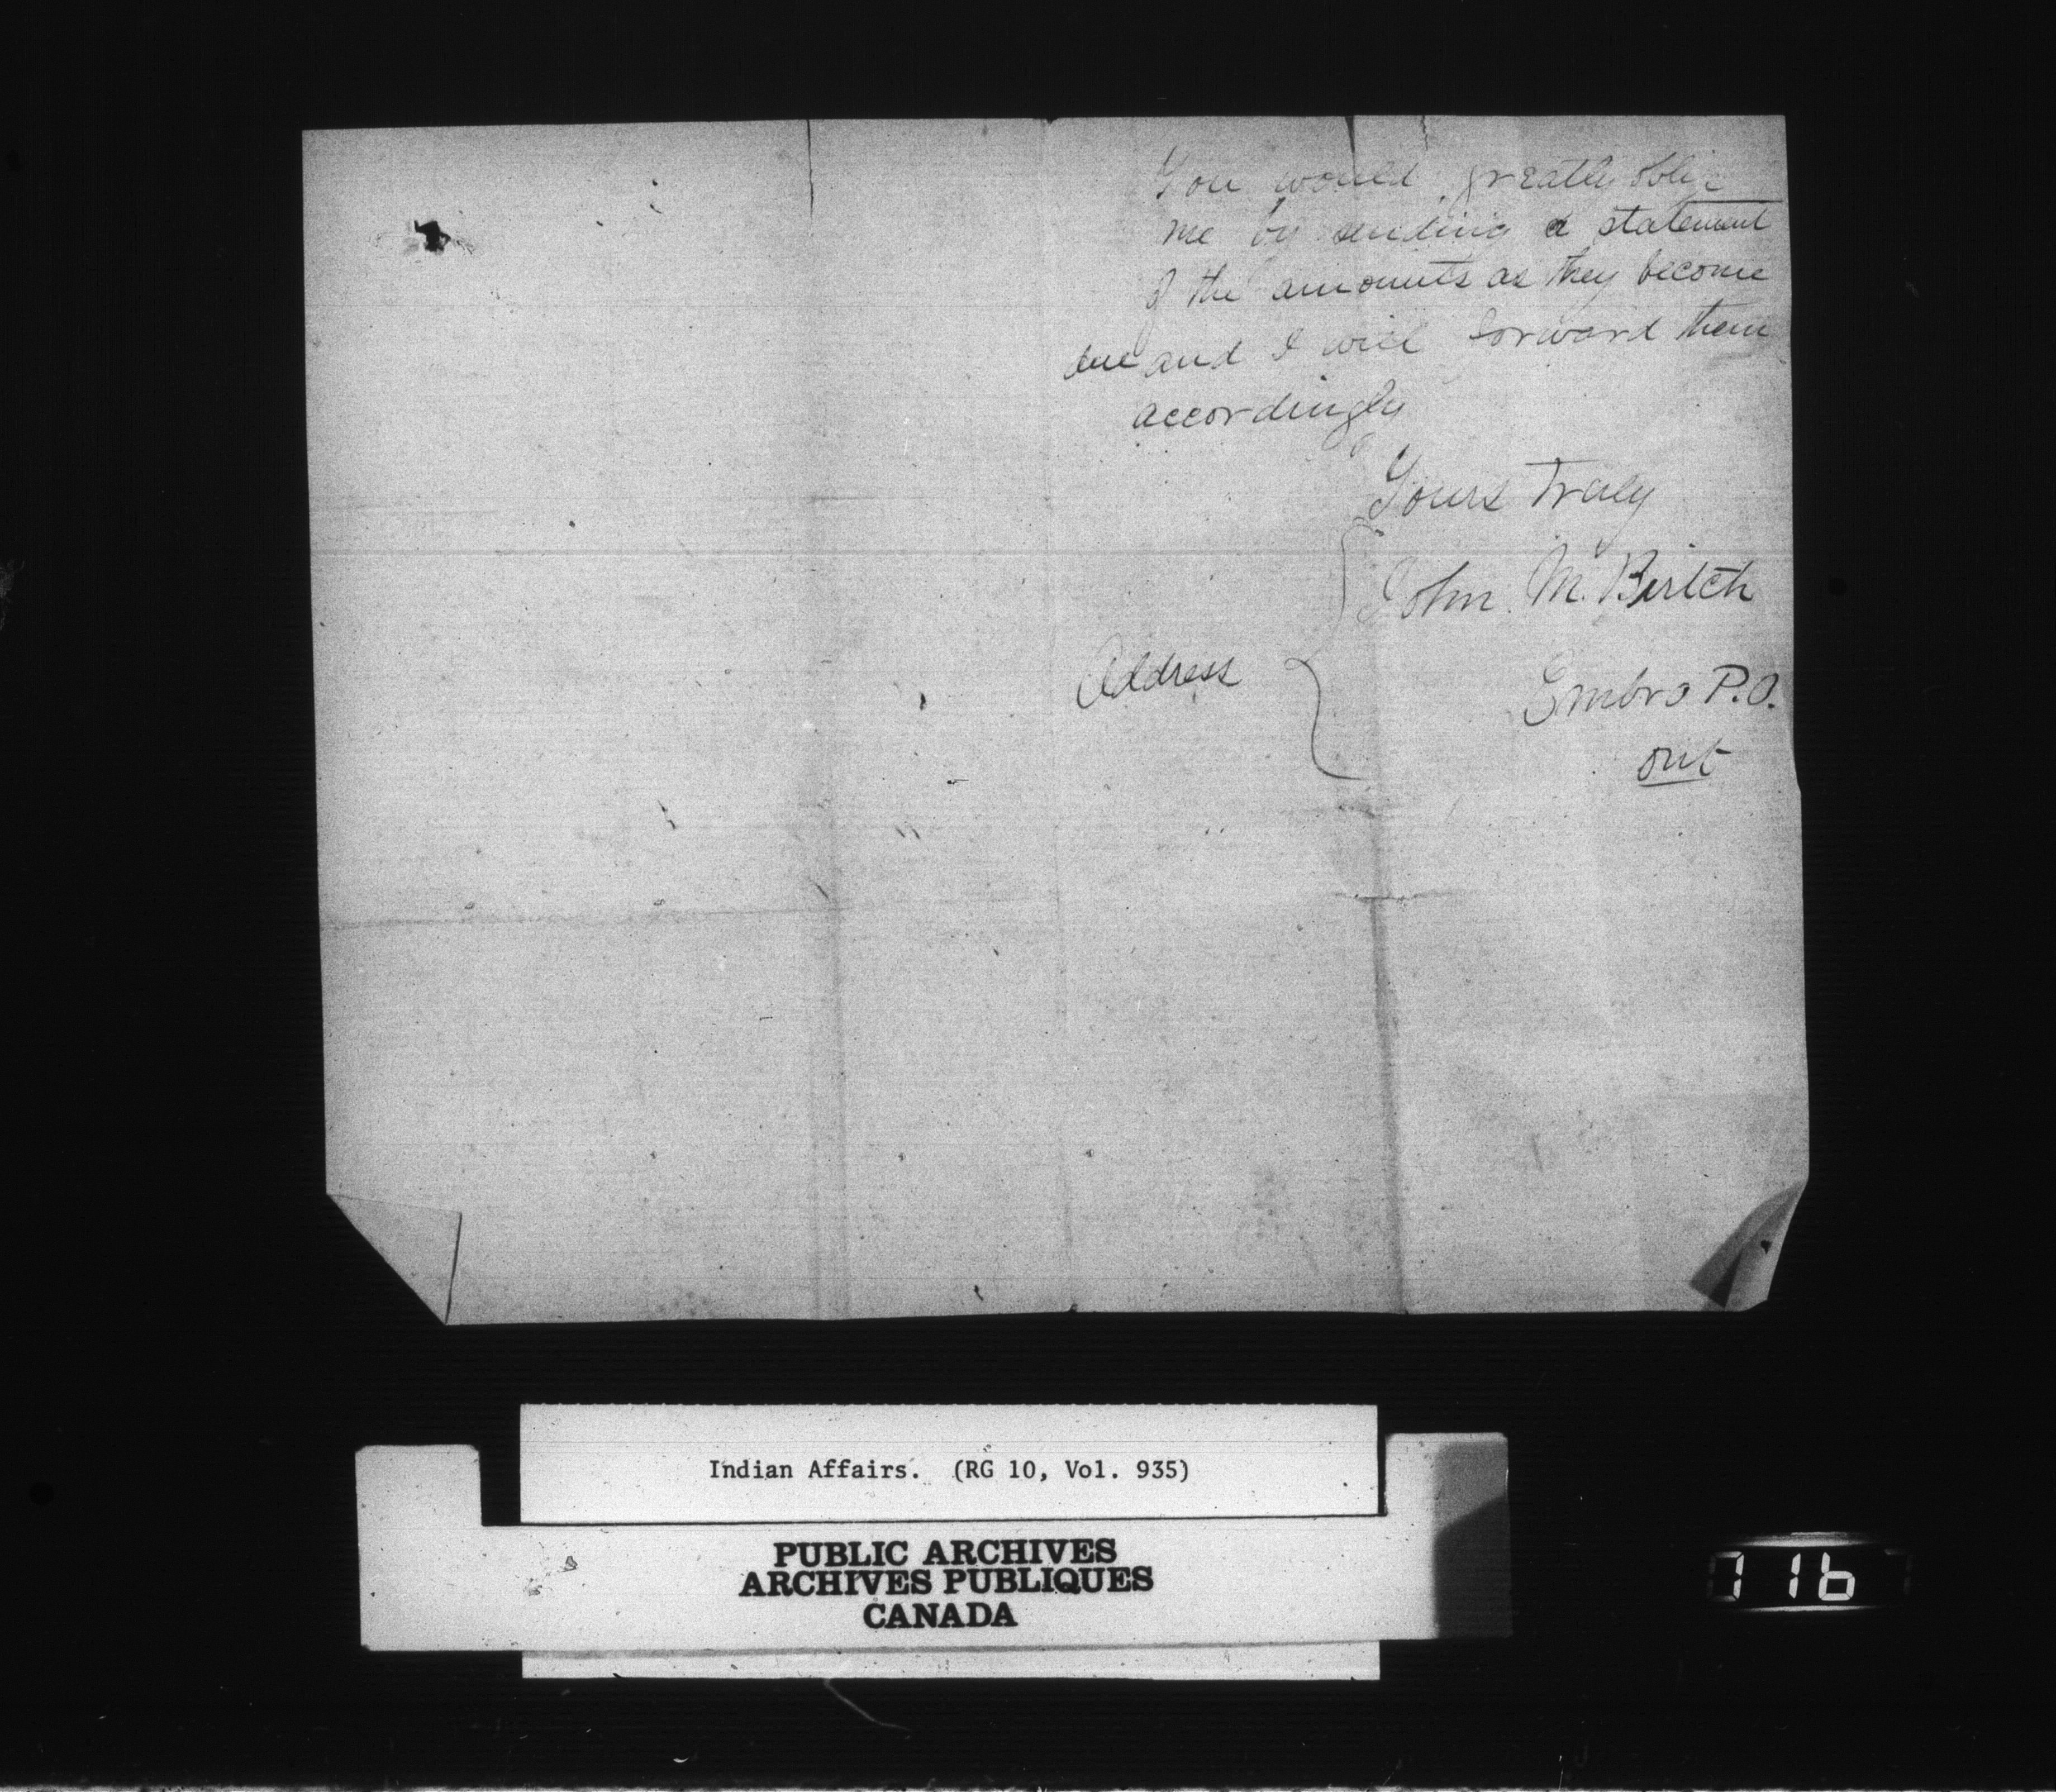 You would greatly oblige
me by sending a statement
of the amounts as they become
due and I will forward them
accordingly
Yours Truly
John M. Birtch
Address
Embro P.O.
Ont
Indian Affairs. (RG 10, Vol. 935)
PUBLIC ARCHIVES
ARCHIVES PUBLIQUES
CANADA
116